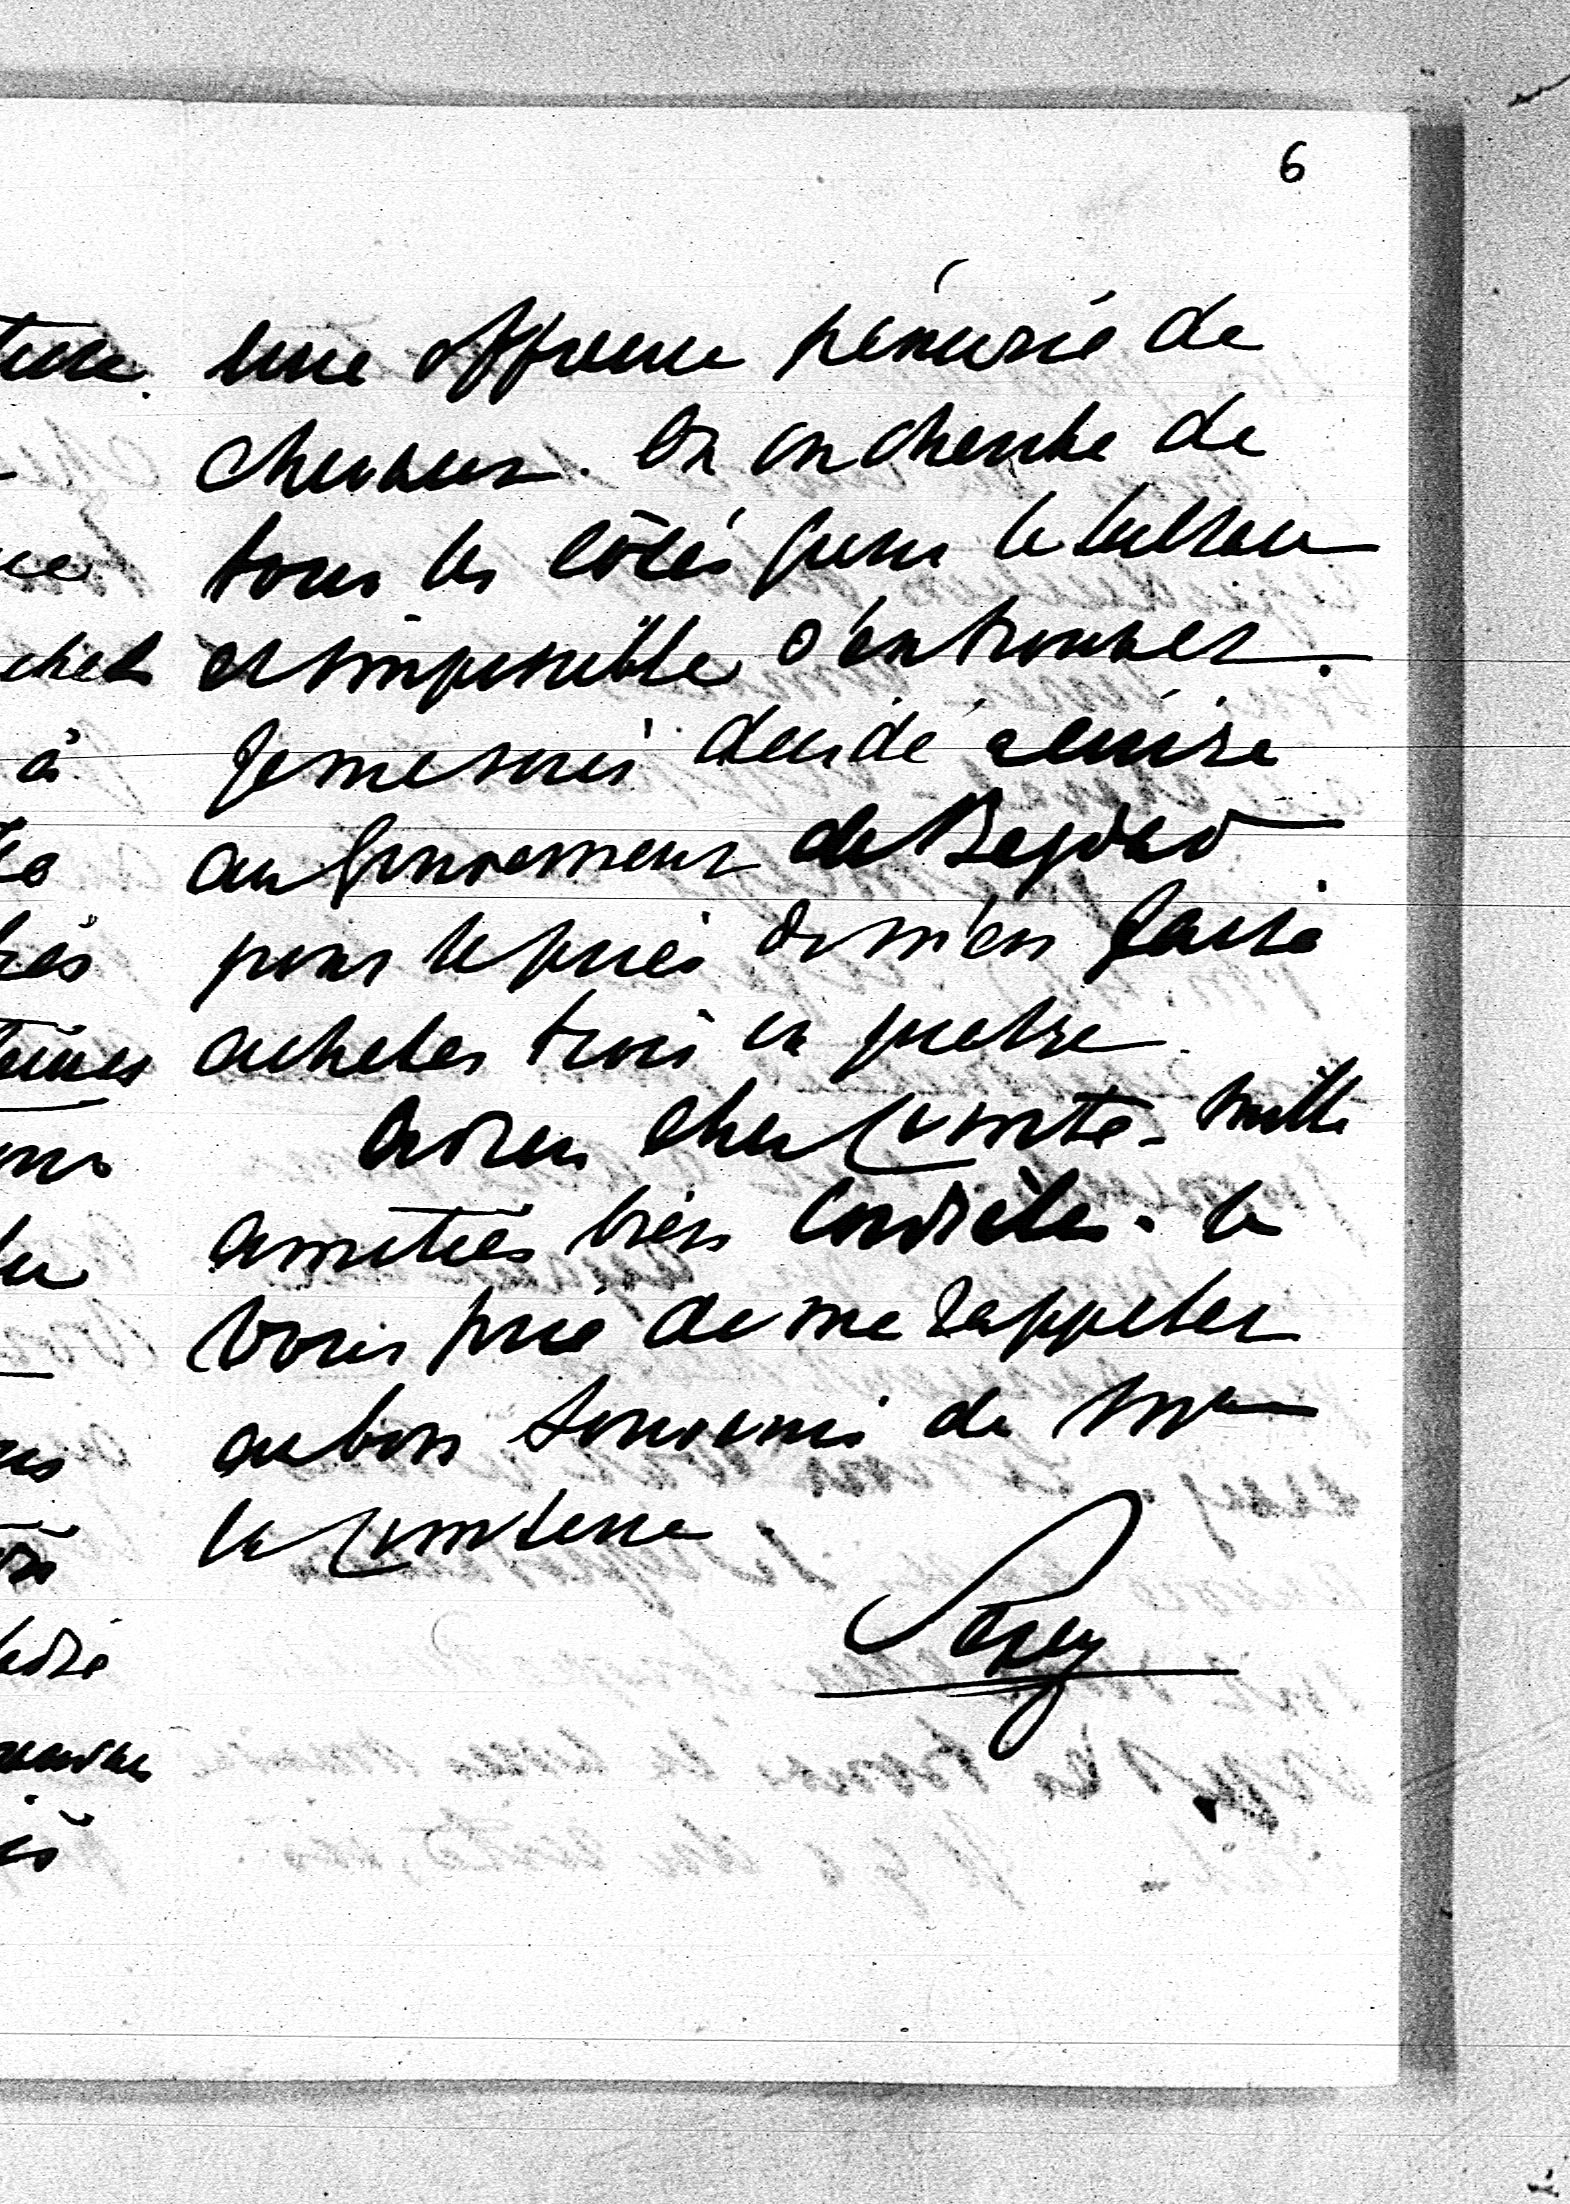 6
une affreuse pénurie de
chevaux. On en cherche de
tous les côtés pour le Sultan
et impossible d'en trouver.
Je me suis décidé à écrire
au Gouverneur de Bagdad
pour le prier de m'en faire
acheter trois ou quatre.
Adieu cher Comte. Mille
amitiés bien cordiales. Je
vous prie de me rappeler
au bon souvenir de Mme
la Comtesse